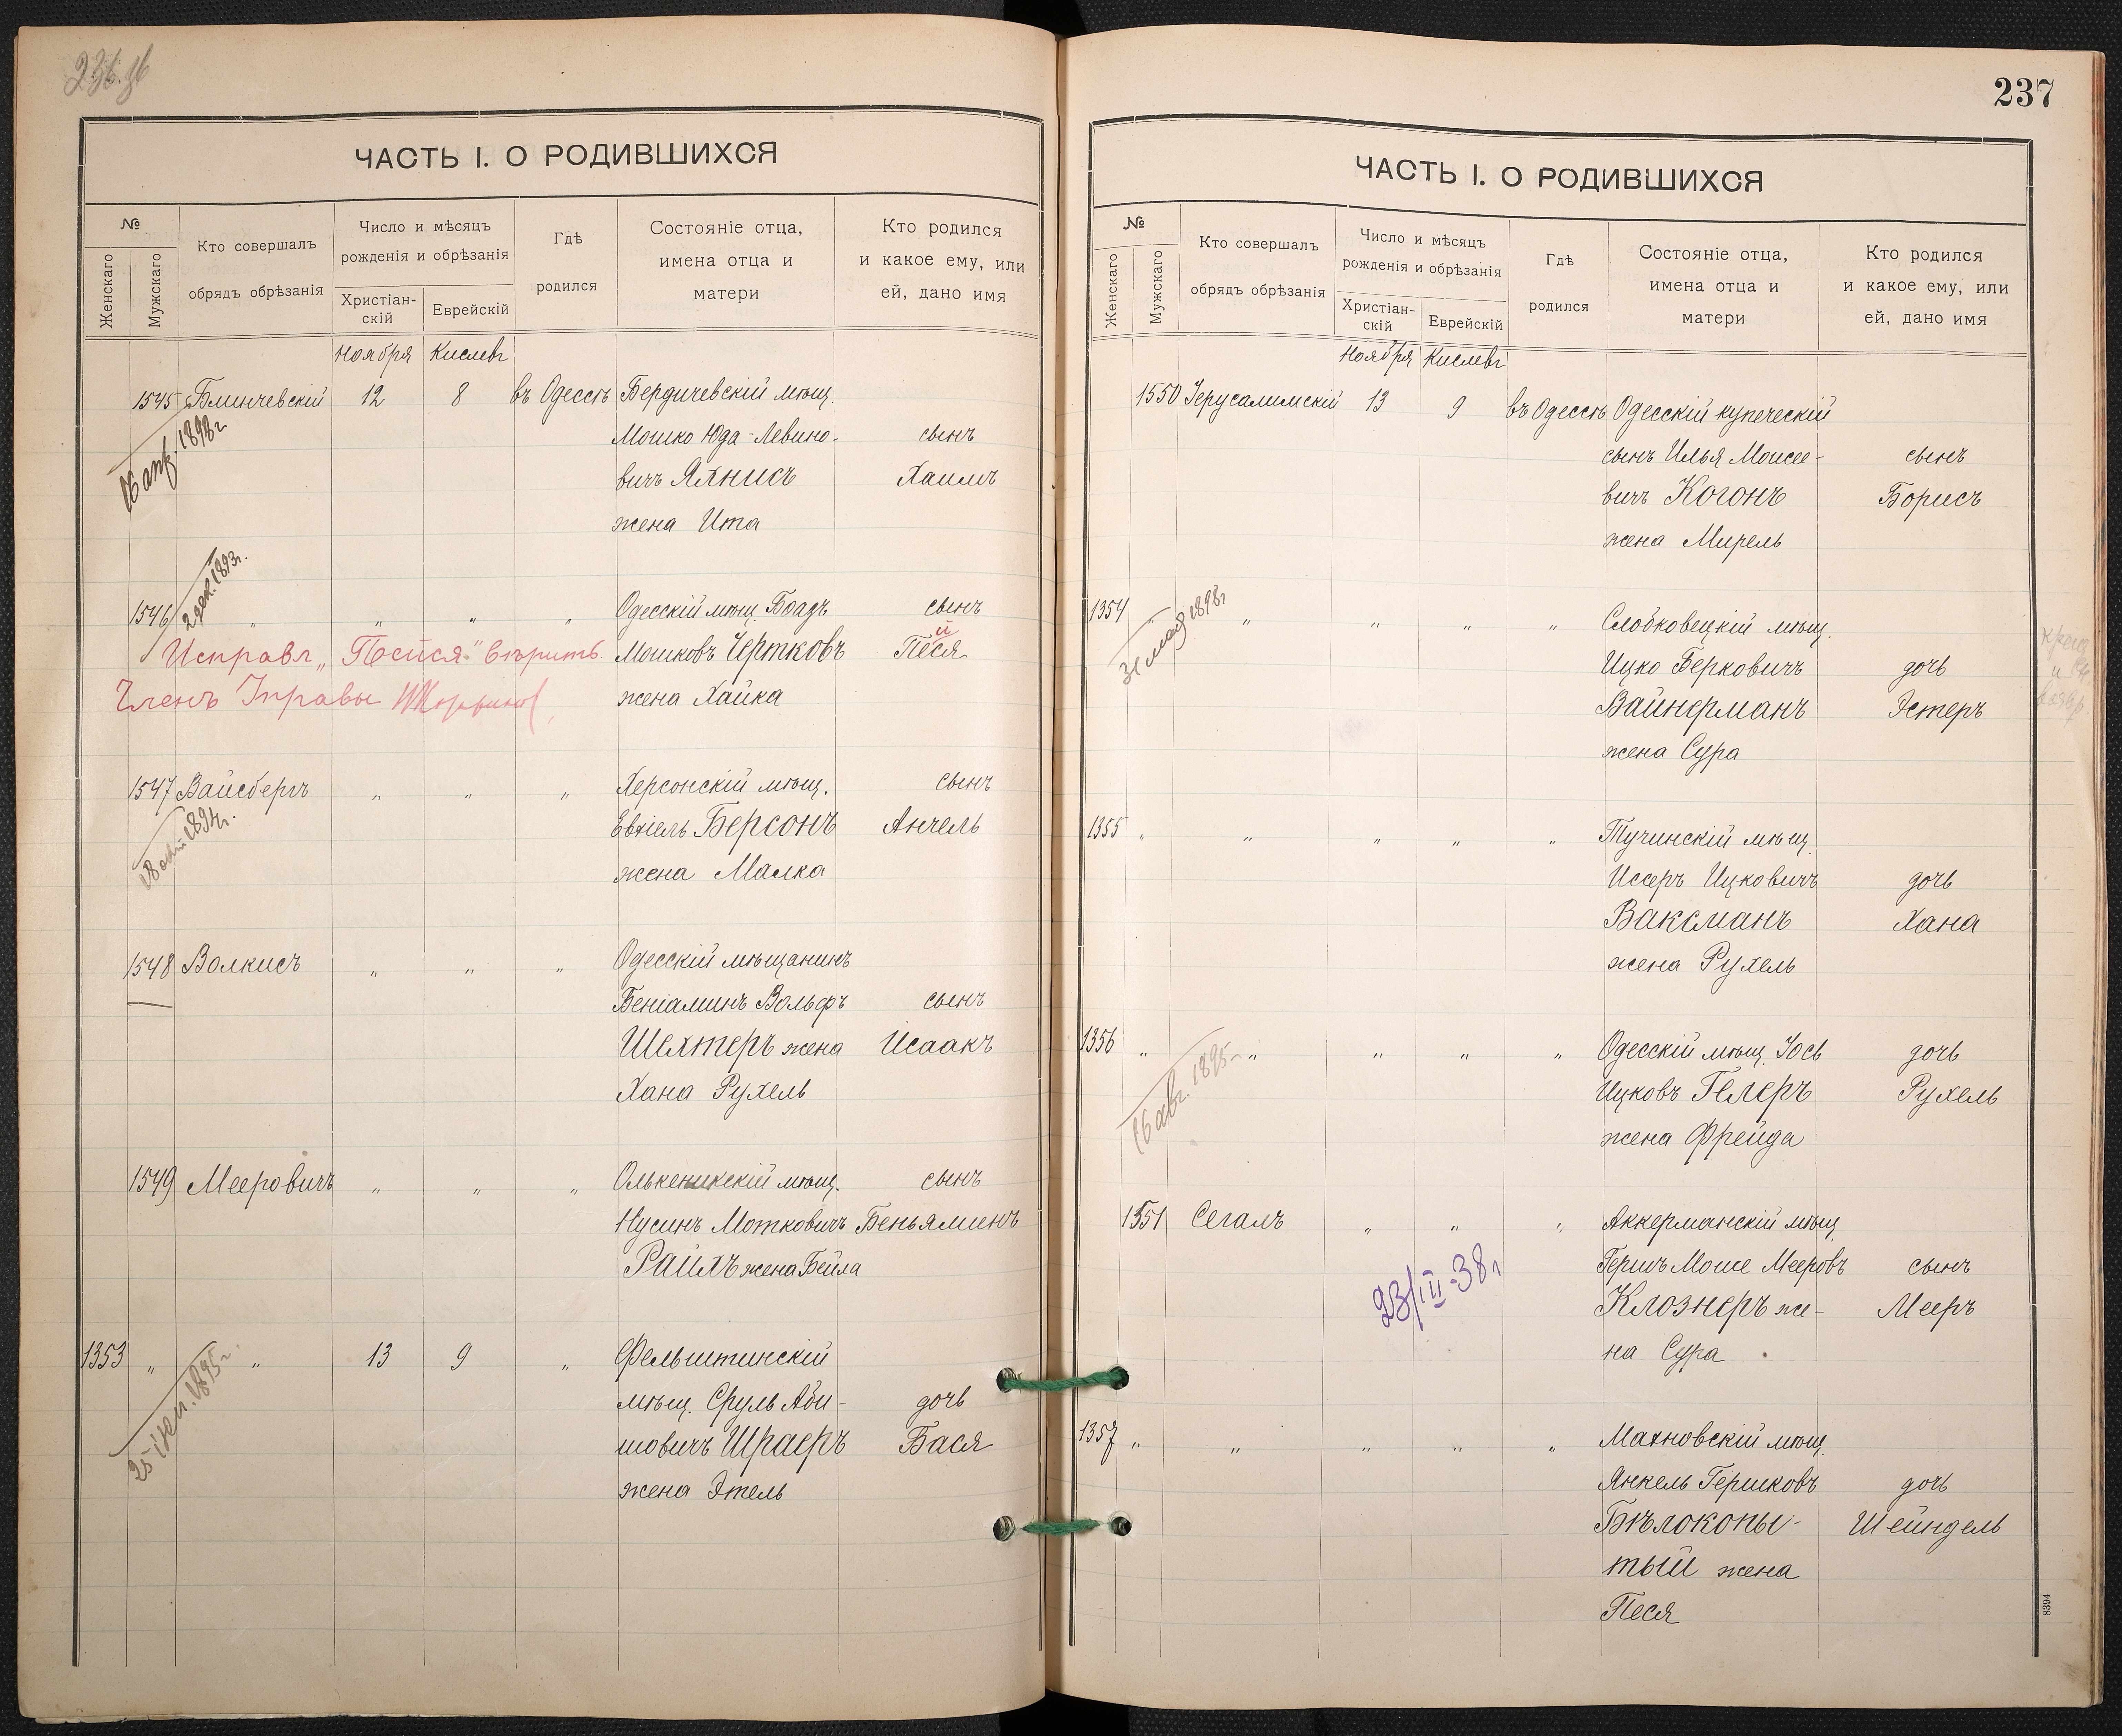 237
ЧАСТЬ I. О РОДИВШИХСЯ
№
Женскаго
Мужскаго
Кто совершалъ
обрядъ обрѣзанія
Число и мѣсяцъ
рожденія и обрѣзанія
Христіан-
скій
Еврейскій
Гдѣ
родился
Состояніе отца,
имена отца и
матери
Кто родился
и какое ему, или
ей, дано имя
Ноября Кислевъ
1545 Блинчевскій 12 8 въ Одессѣ Бердичевскій мѣщ.
Мошко Юда-Левино- сынъ
вичъ Яхнисъ Хаимъ
жена Ита
16 апр. 1898г
1546 " " " " Одесскій мѣщ. Боадъ сынъ
2 дек. 1893г.
Исправл. „Пейся" вѣрить. Мошковъ Чертковъ Песя
й
Членъ Управы жена Хайка
1547 Вайсбергъ " " " Херсонскій мѣщ. сынъ
Евхіель Берсонъ Анчель
жена Малка
1548 Волкисъ " " " Одесскій мѣщанинъ
Беніаминъ Вольфъ сынъ
Шехтеръ жена Исаакъ
Хана Рухель
1549 Мееровичъ " " " Олькеникскій мѣщ. сынъ
Нусинъ Мотковичъ Беньяминъ
Райхъ жена Бейла
1353 " " 13 9 " Фельштинскій
мѣщ. Сруль Аби- дочь
шовичъ Шраеръ Бася
жена Этель
ЧАСТЬ I. О РОДИВШИХСЯ
№
Женскаго
Мужскаго
Кто совершалъ
обрядъ обрѣзанія
Число и мѣсяцъ
рожденія и обрѣзанія
Христіан-
скій
Еврейскій
Гдѣ
родился
Состояніе отца,
имена отца и
матери
Кто родился
и какое ему, или
ей, дано имя
Ноября Кислевъ
1550 Іерусалимскій 13 9 въ Одессѣ Одесскій купеческій
сынъ Илья Моисее- сынъ
вичъ Когонъ Борисъ
жена Мирель
1354 " " " " " Слобковецкій мѣщ.
31 мая 1898г
Ицко Берковичъ дочь
Вайнерманъ Эстеръ
жена Сура
1355 " " " " " Тучинскій мѣщ.
Иссеръ Ицковичъ дочь
Ваксманъ Хана
жена Рухель
1356 " " " " " Одесскій мѣщ. Іось дочь
16 авг. 1895г
Ицковъ Гелеръ Рухель
жена Фрейда
1551 Сегалъ " " " Аккерманскій мѣщ.
Гершъ Моше Мееровъ сынъ
23/III-38г
Клознеръ же- Мееръ
на Сура
1357 " " " " " Махновскій мѣщ.
Янкель Гершковъ дочь
Бѣлокопы- Шейндель
тый жена
Песя
8394